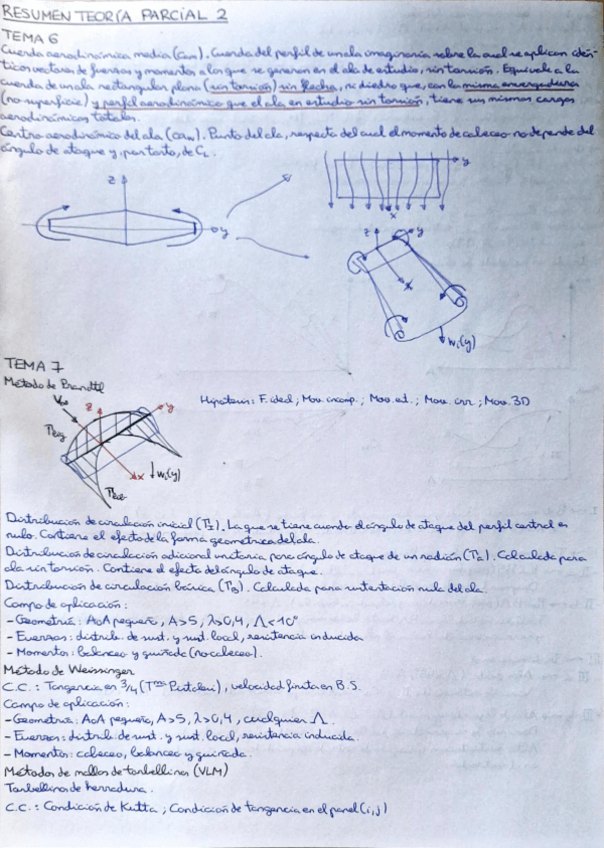 RESUMEN TEORÍA PARCIAL 2
TEMA 6
Cuerda aerodinámica media (CAM). Cuerda del perfil de un ala imaginaria sobre la cual se aplican idén-
ticos vectores de fuerzas y momentos a los que se generan en el ala de estudio, sin torsión. Equivale a la
cuerda de un ala rectangular plana (sin torsión) sin flecha, ni diedro que, con la misma envergadura
(no superficie) y perfil aerodinámico que el ala en estudio sin torsión, tiene sus mismas cargas
aerodinámicas totales.
Centro aerodinámico del ala (caw). Punto del ala, respecto del cual el momento de cabeceo no depende del
ángulo de ataque y, por tanto, de CL.
z
y
y
x
z
y
x
wi(y)
TEMA 7
Método de Prandtl
Hipótesis: F. ideal; Mov. incomp.; Mov. est.; Mov. irr.; Mov. 3D
V∞
z
y
x
wi(y)
Distribución de circulación inicial (ΓI). La que se tiene cuando el ángulo de ataque del perfil central es
nulo. Contiene el efecto de la forma geométrica del ala.
Distribución de circulación adicional unitaria para ángulo de ataque de un radián (Γa). Calculada para
ala sin torsión. Contiene el efecto del ángulo de ataque.
Distribución de circulación básica (ΓB). Calculada para sustentación nula del ala.
Campo de aplicación:
- Geometría: AoA pequeño, A>5, λ>0,4, Λ<10°
- Fuerzas: distrib. de sust. y sust. local, resistencia inducida
- Momentos: balanceo y guiñada (no cabeceo).
Método de Weissinger
C.C.: Tangencia en 3/4 (Tma Pistolesi), velocidad finita en B.S.
Campo de aplicación:
- Geometría: AoA pequeño, A>5, λ>0,4, cualquier Λ.
- Fuerzas: distrib. de sust. y sust. local, resistencia inducida.
- Momentos: cabeceo, balanceo y guiñada.
Métodos de mallas de torbellinos (VLM)
Torbellinos de herradura.
C.C.: Condición de Kutta; Condición de tangencia en el panel (i,j)